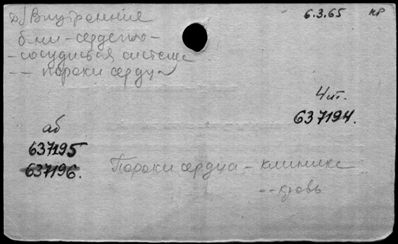 а) Внутренние
6.3.65 кр
б-ни - сердечно-
- сосудистая система
-- пороки сердца
4 ит.
637194.
аб
637195
637196.
Пороки сердца - клиника
-- кровь